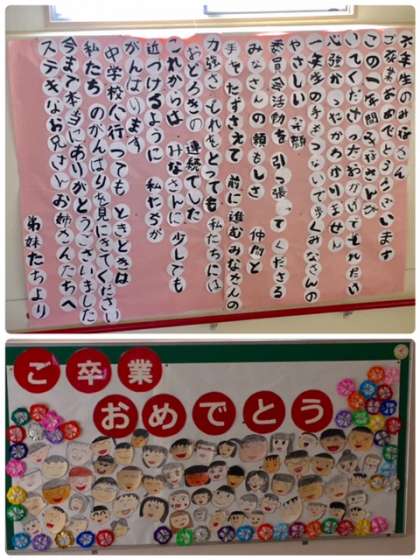 六年生のみなさん
ご卒業おめでとうございます
この一年間みなさんが
いてくださったおかげでどれだけ
心強かったかわかりません
一年生の手をつないで歩くみなさんの
やさしい 笑顔
委員会活動を引っ張ってくださる
みなさんの頼もしさ 仲間と
手をたずさえて 前に進むみなさんの
力強さ どれをとっても 私たちには
おどろきの 連続でした
これからは みなさんに 少しでも
近づけるように 私たちが
がんばります
中学校へ行っても ときどきは
私たち のがんばりを見にきてください
今まで本当にありがとうございました
ステキなお兄さんお姉さんたちへ
弟妹たちより
ご卒業
おめでとう